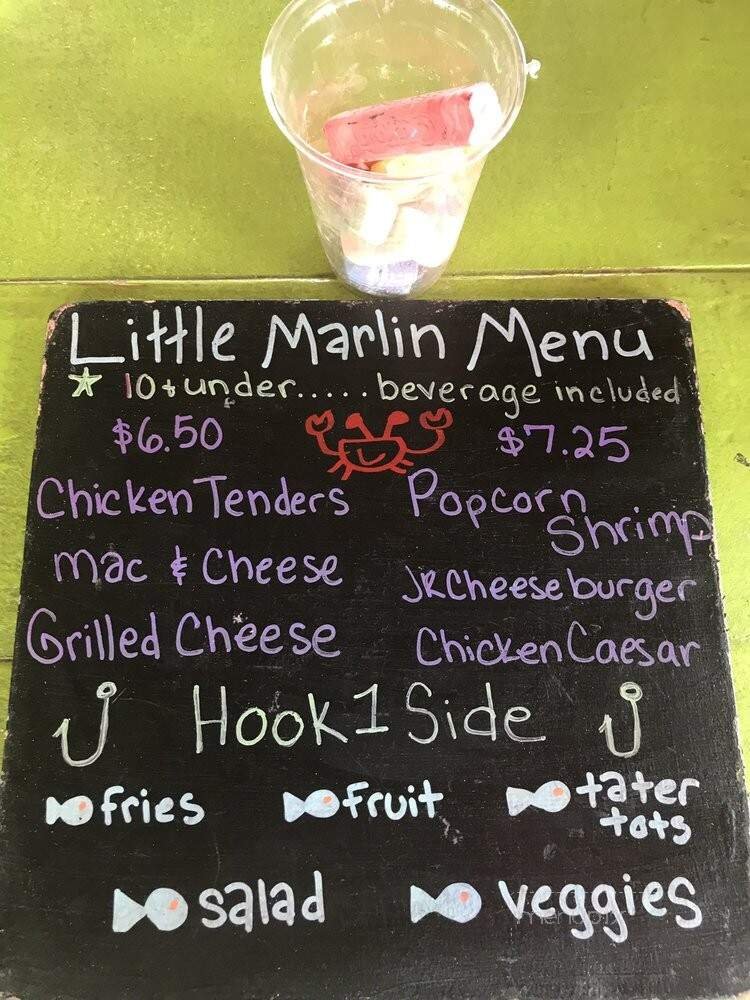 Little Marlin Menu
10 & under..... beverage included
$6.50 $7.25
Chicken Tenders Popcorn Shrimp
Mac & Cheese JR Cheeseburger
Grilled Cheese Chicken Caesar
Hook 1 Side
fries fruit tater tots
salad veggies